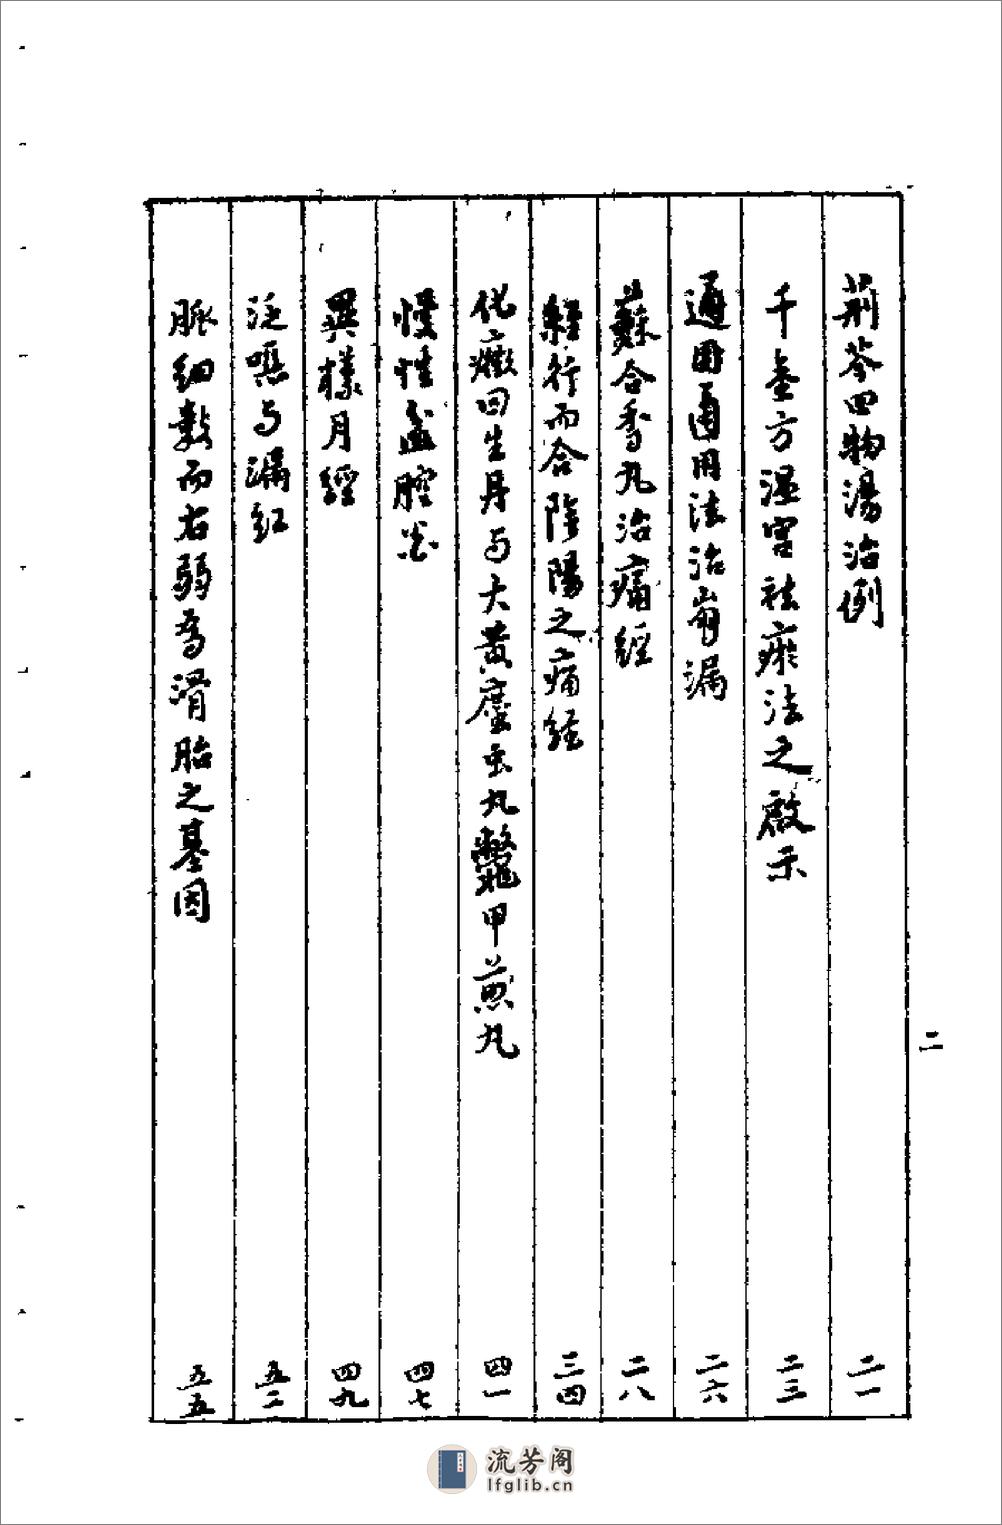 荆芩四物湯治例 二一
千金方温宫祛瘀法之啟示 二三
通因通用法治崩漏 二六
蘇合香丸治痛經 二八
經行而合陰陽之痛経 三四
化癥回生丹与大黄䗪虫丸鱉甲煎丸 四一
慢性盆腔炎 四七
異樣月經 四九
泛噁与漏紅 五二
脈细數而右弱為滑胎之基因 五五
二
流芳阁
lfglib.cn